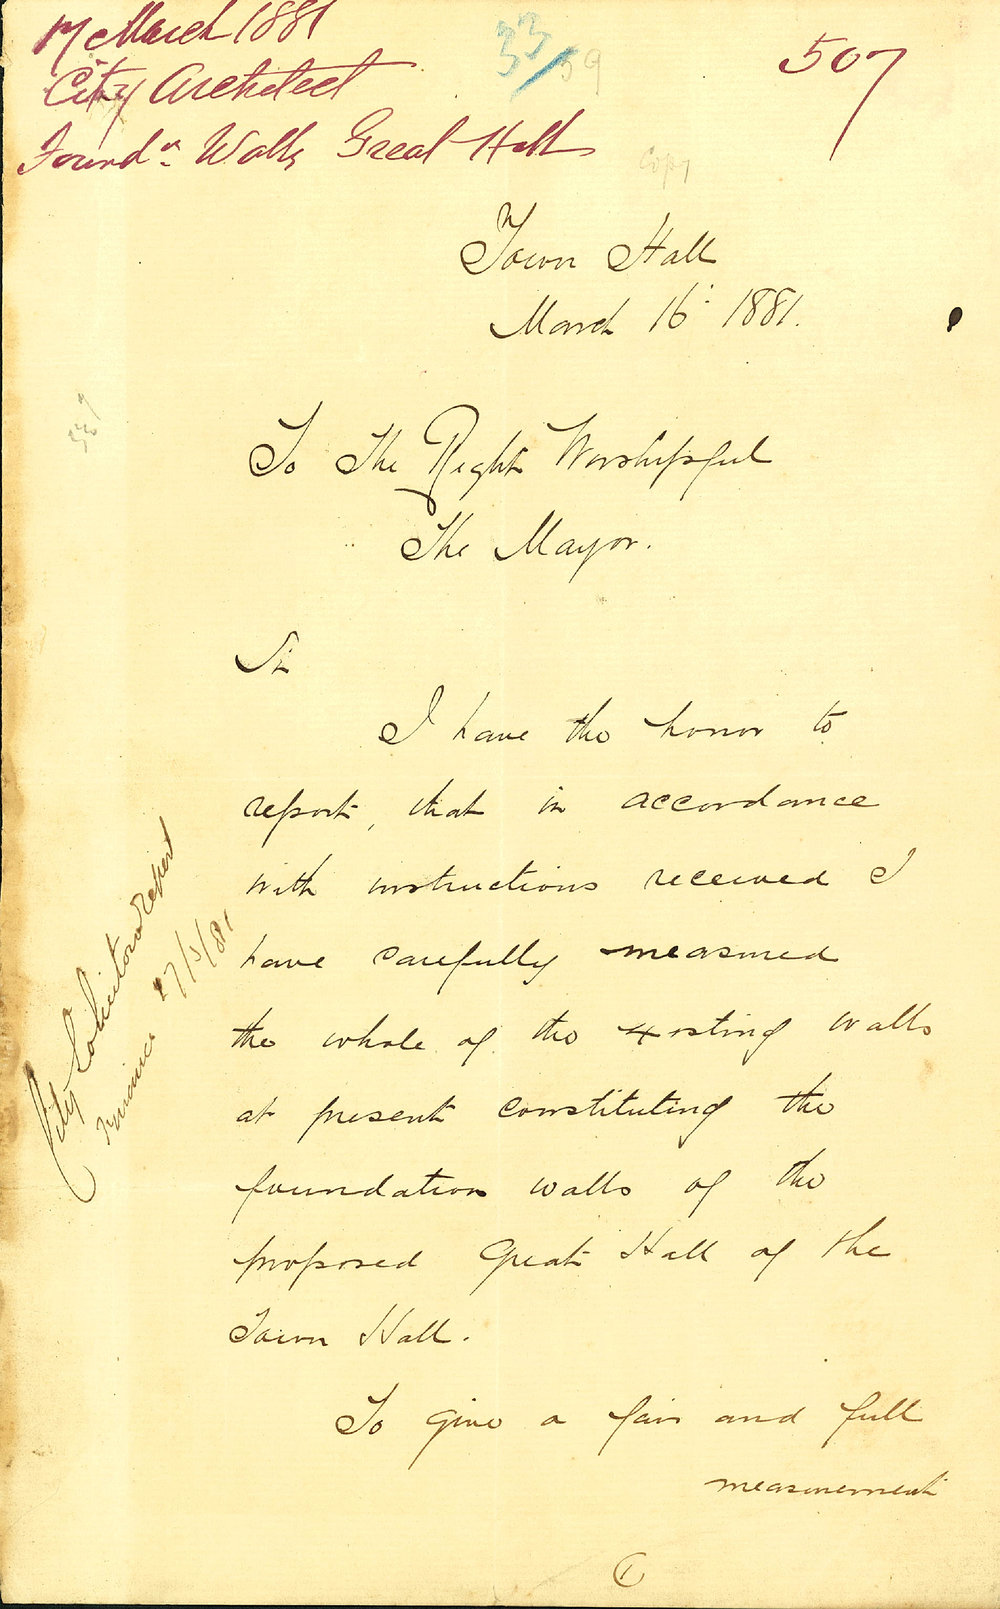 17 March 1881
City Architect
Foundn. Walls Great Hall
33/59
507
Copy
Town Hall
March 16: 1881.
To The Right Worshipful
The Mayor.
Sir
I have the honor to
report, that in accordance
with instructions received I
have carefully measured
the whole of the existing walls
at present constituting the
foundation walls of the
proposed Great Hall of the
Town Hall.
To give a fair and full
measurement
City Solicitors Report
27/5/81
1